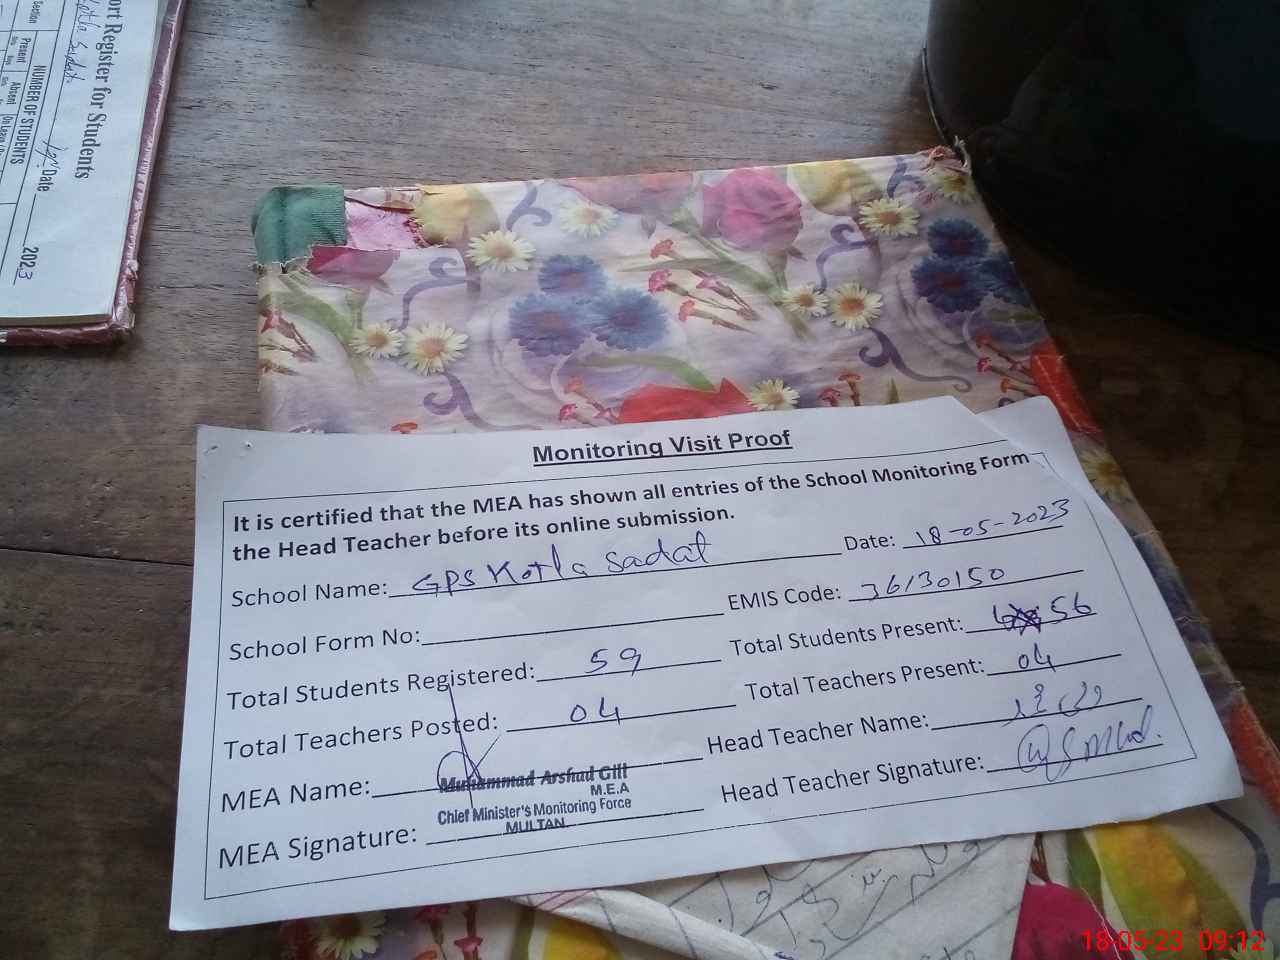 ort Register for Students
Section
Present
Absent
NUMBER OF STUDENTS
Date
2023
Monitoring Visit Proof
It is certified that the MEA has shown all entries of the School Monitoring Form
the Head Teacher before its online submission.
School Name: GPS Kotla Sadat Date: 18-05-2023
School Form No: EMIS Code: 36130150
Total Students Registered: 59 Total Students Present: 56
Total Teachers Posted: 04 Total Teachers Present: 04
MEA Name: Muhammad Arshad Gill Head Teacher Name:
M.E.A
Chief Minister's Monitoring Force
MULTAN
MEA Signature: Head Teacher Signature:
18-05-23 09:12